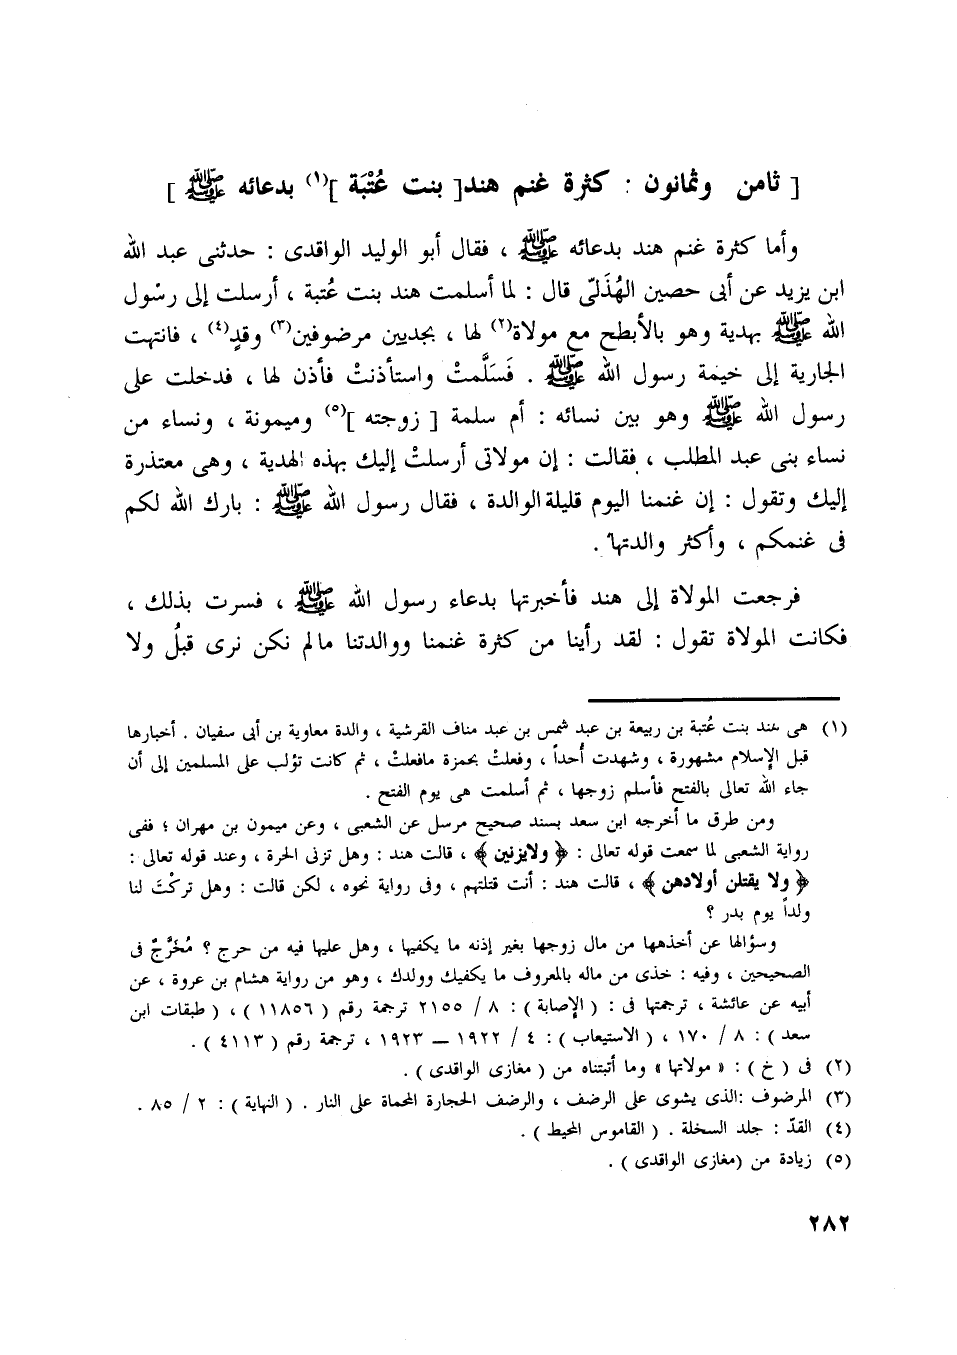 [ ثامن وثمانون : كثرة غنم هند[ بنت عُتْبَة ](١) بدعائه ﷺ ]
وأما كثرة غنم هند بدعائه ﷺ ، فقال أبو الوليد الواقدى : حدثنى عبد الله
ابن يزيد عن أبى حصين الهُذَلىّ قال : لما أسلمت هند بنت عُتبة ، أرسلت إلى رسْول
الله ﷺ بهدية وهو بالأبطح مع مولاة(٢) لها ، بجديين مرضوفين(٣) وقدٍ(٤) ، فانتهت
الجارية إلى خيمة رسول الله ﷺ . فَسَلَّمتْ واستأذنتْ فأذن لها ، فدخلت على
رسول الله ﷺ وهو بين نسائه : أم سلمة [ زوجته ](٥) وميمونة ، ونساء من
نساء بنى عبد المطلب ، فقالت : إن مولاتى أرسلتْ إليك بهذه الهدية ، وهى معتذرة
إليك وتقول : إن غنمنا اليوم قليلة الوالدة ، فقال رسول الله ﷺ : بارك الله لكم
فى غنمكم ، وأكثر والدتها .
فرجعت المولاة إلى هند فأخبرتها بدعاء رسول الله ﷺ ، فسرت بذلك ،
فكانت المولاة تقول : لقد رأينا من كثرة غنمنا ووالدتنا مالم نكن نرى قبلُ ولا
(١) هى هند بنت عُتبة بن ربيعة بن عبد شمس بن عبد مناف القرشية ، والدة معاوية بن أبى سفيان . أخبارها
قبل الإسلام مشهورة ، وشهدت أُحداً ، وفعلتْ بحمزة مافعلتْ ، ثم كانت تؤلب على المسلمين إلى أن
جاء الله تعالى بالفتح فأسلم زوجها ، ثم أسلمت هى يوم الفتح .
ومن طرق ما أخرجه ابن سعد بسند صحيح مرسل عن الشعبى ، وعن ميمون بن مهران ؛ ففى
رواية الشعبى لما سمعت قوله تعالى : ﴿ ولايزنين ﴾ ، قالت هند : وهل تزنى الحرة ، وعند قوله تعالى :
﴿ ولا يقتلن أولادهن ﴾ ، قالت هند : أنت قتلتهم ، وفى رواية نحوه ، لكن قالت : وهل تركْتَ لنا
ولداً يوم بدر ؟
وسؤالها عن أخذهها من مال زوجها بغير إذنه ما يكفيها ، وهل عليها فيه من حرج ؟ مُخَرَّجٌ فى
الصحيحين ، وفيه : خذى من ماله بالمعروف ما يكفيك وولدك ، وهو من رواية هشام بن عروة ، عن
أبيه عن عائشة ، ترجمتها فى : ( الإصابة ) : ٨ / ٢١٥٥ ترجمة رقم ( ١١٨٥٦ ) ، ( طبقات ابن
سعد ) : ٨ / ١٧٠ ، ( الاستيعاب ) : ٤ / ١٩٢٢ ــ ١٩٢٣ ، ترجمة رقم ( ٤١١٣ ) .
(٢) فى ( خ ) : « مولاتها » وما أثبتناه من ( مغازى الواقدى ) .
(٣) المرضوف :الذى يشوى على الرضف ، والرضف الحجارة المحماة على النار . ( النهاية ) : ٢ / ٨٥ .
(٤) القدّ : جلد السخلة . ( القاموس المحيط ) .
(٥) زيادة من (مغازى الواقدى ) .
٢٨٢